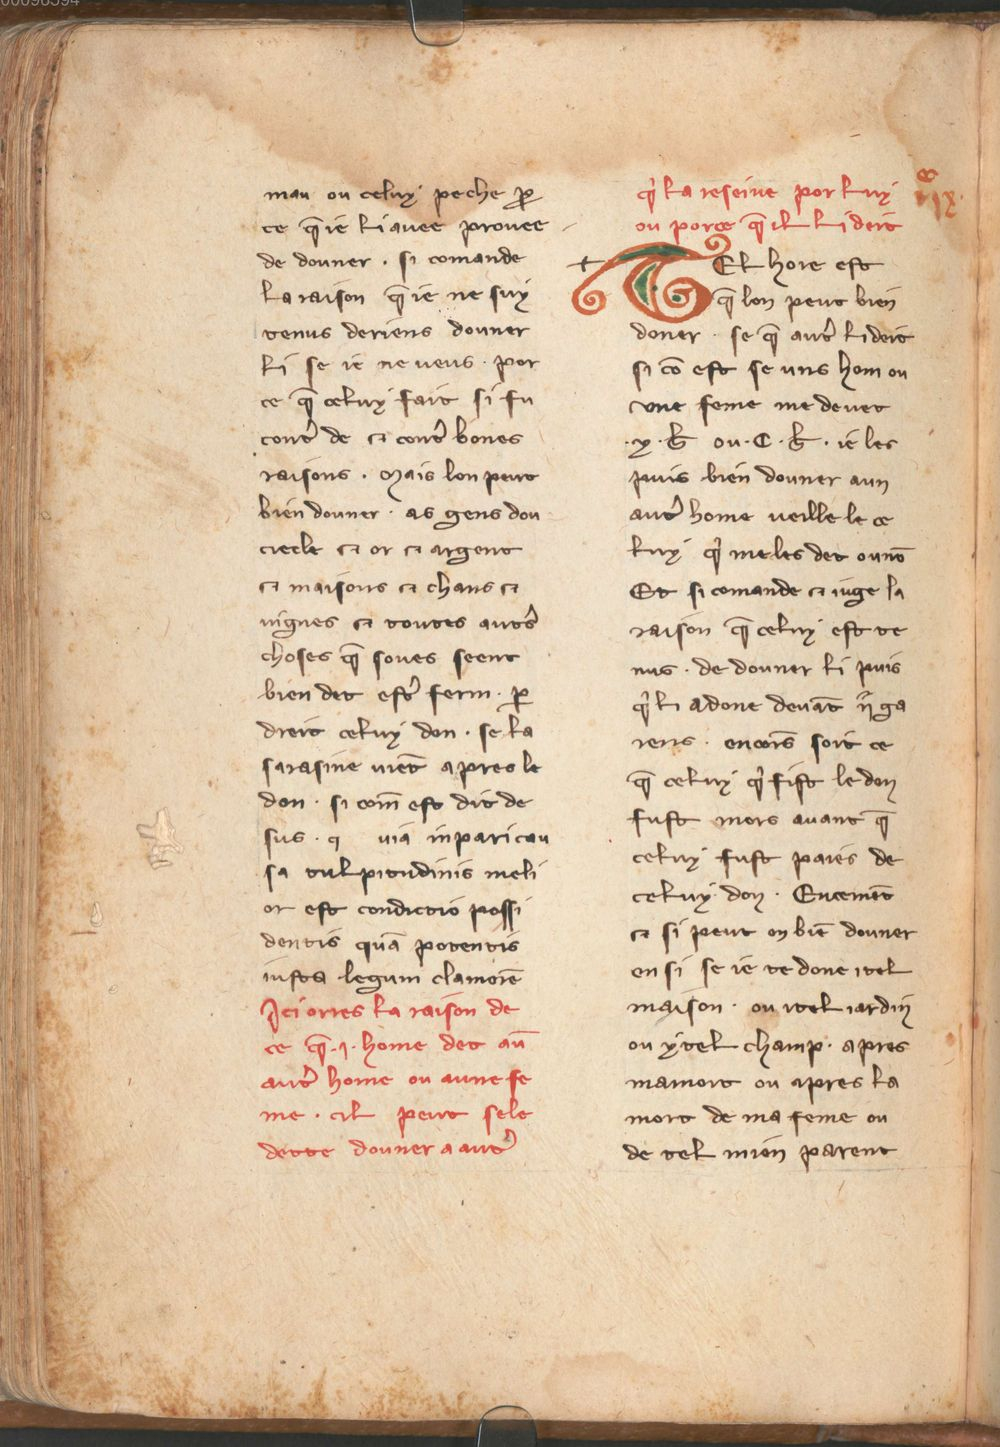 mau ou celuy peche ꝑ
ce q̃ ie li auee prouee
de donner . si comande
la raison q̃ ie ne suy
tenus deriens donner
li se ie ne ueus . por
ce q̃ celuy fait si fu
cont᷑ de ⁊ cont᷑ bones
raisons . Mais lon peut
bien donner . as gens dou
siecle ⁊ or ⁊ argent
⁊ maisons ⁊ chans ⁊
uignes ⁊ toutes aut᷑s
choses q̃ soues seent
bien det est᷑ ferm . ꝑ
dreit celuy don . se la
sarasine uiẽt apres le
don . si com̃ est dit de
sus . q uia in pari cau
sa tulpitudinis meli
or est condictio possi
dentis quã potentis
iusta legum clamoiẽ
Ici orres la raison de
ce q̃ .i. home det aũ
aut᷑ home ou aune fe
me . cil peut sele
dette donner a aut᷑
q̓ la reseiue por luy
ou porce q̃ il li deit
Tel hore est
q̃ lon peut bien
doner . se q̃ aut᷑ li deit
si cõ est se uns hom ou
vne feme me deuet
.x. ƀ. ou .C. ƀ. ie les
puis bien donner aun
aut᷑ home ueille le ce
luy q̓ me les det ou nõ
Et si comande ⁊ iuge la
raison q̃ celuy est te
nus . de donner li puis
q̓ li a done deuãt .ij. ga
rens . encores soit ce
q̃ celuy q̓ fist le don
fust mors auant q̃
celuy fust paies de
celuy don . Encemẽt
⁊ si peut on biẽ donner
en si se ie te done itel
maison . ou itel iardin
ou ytel champ . apres
ma mort ou apres la
mort de ma feme ou
de tel mien parent